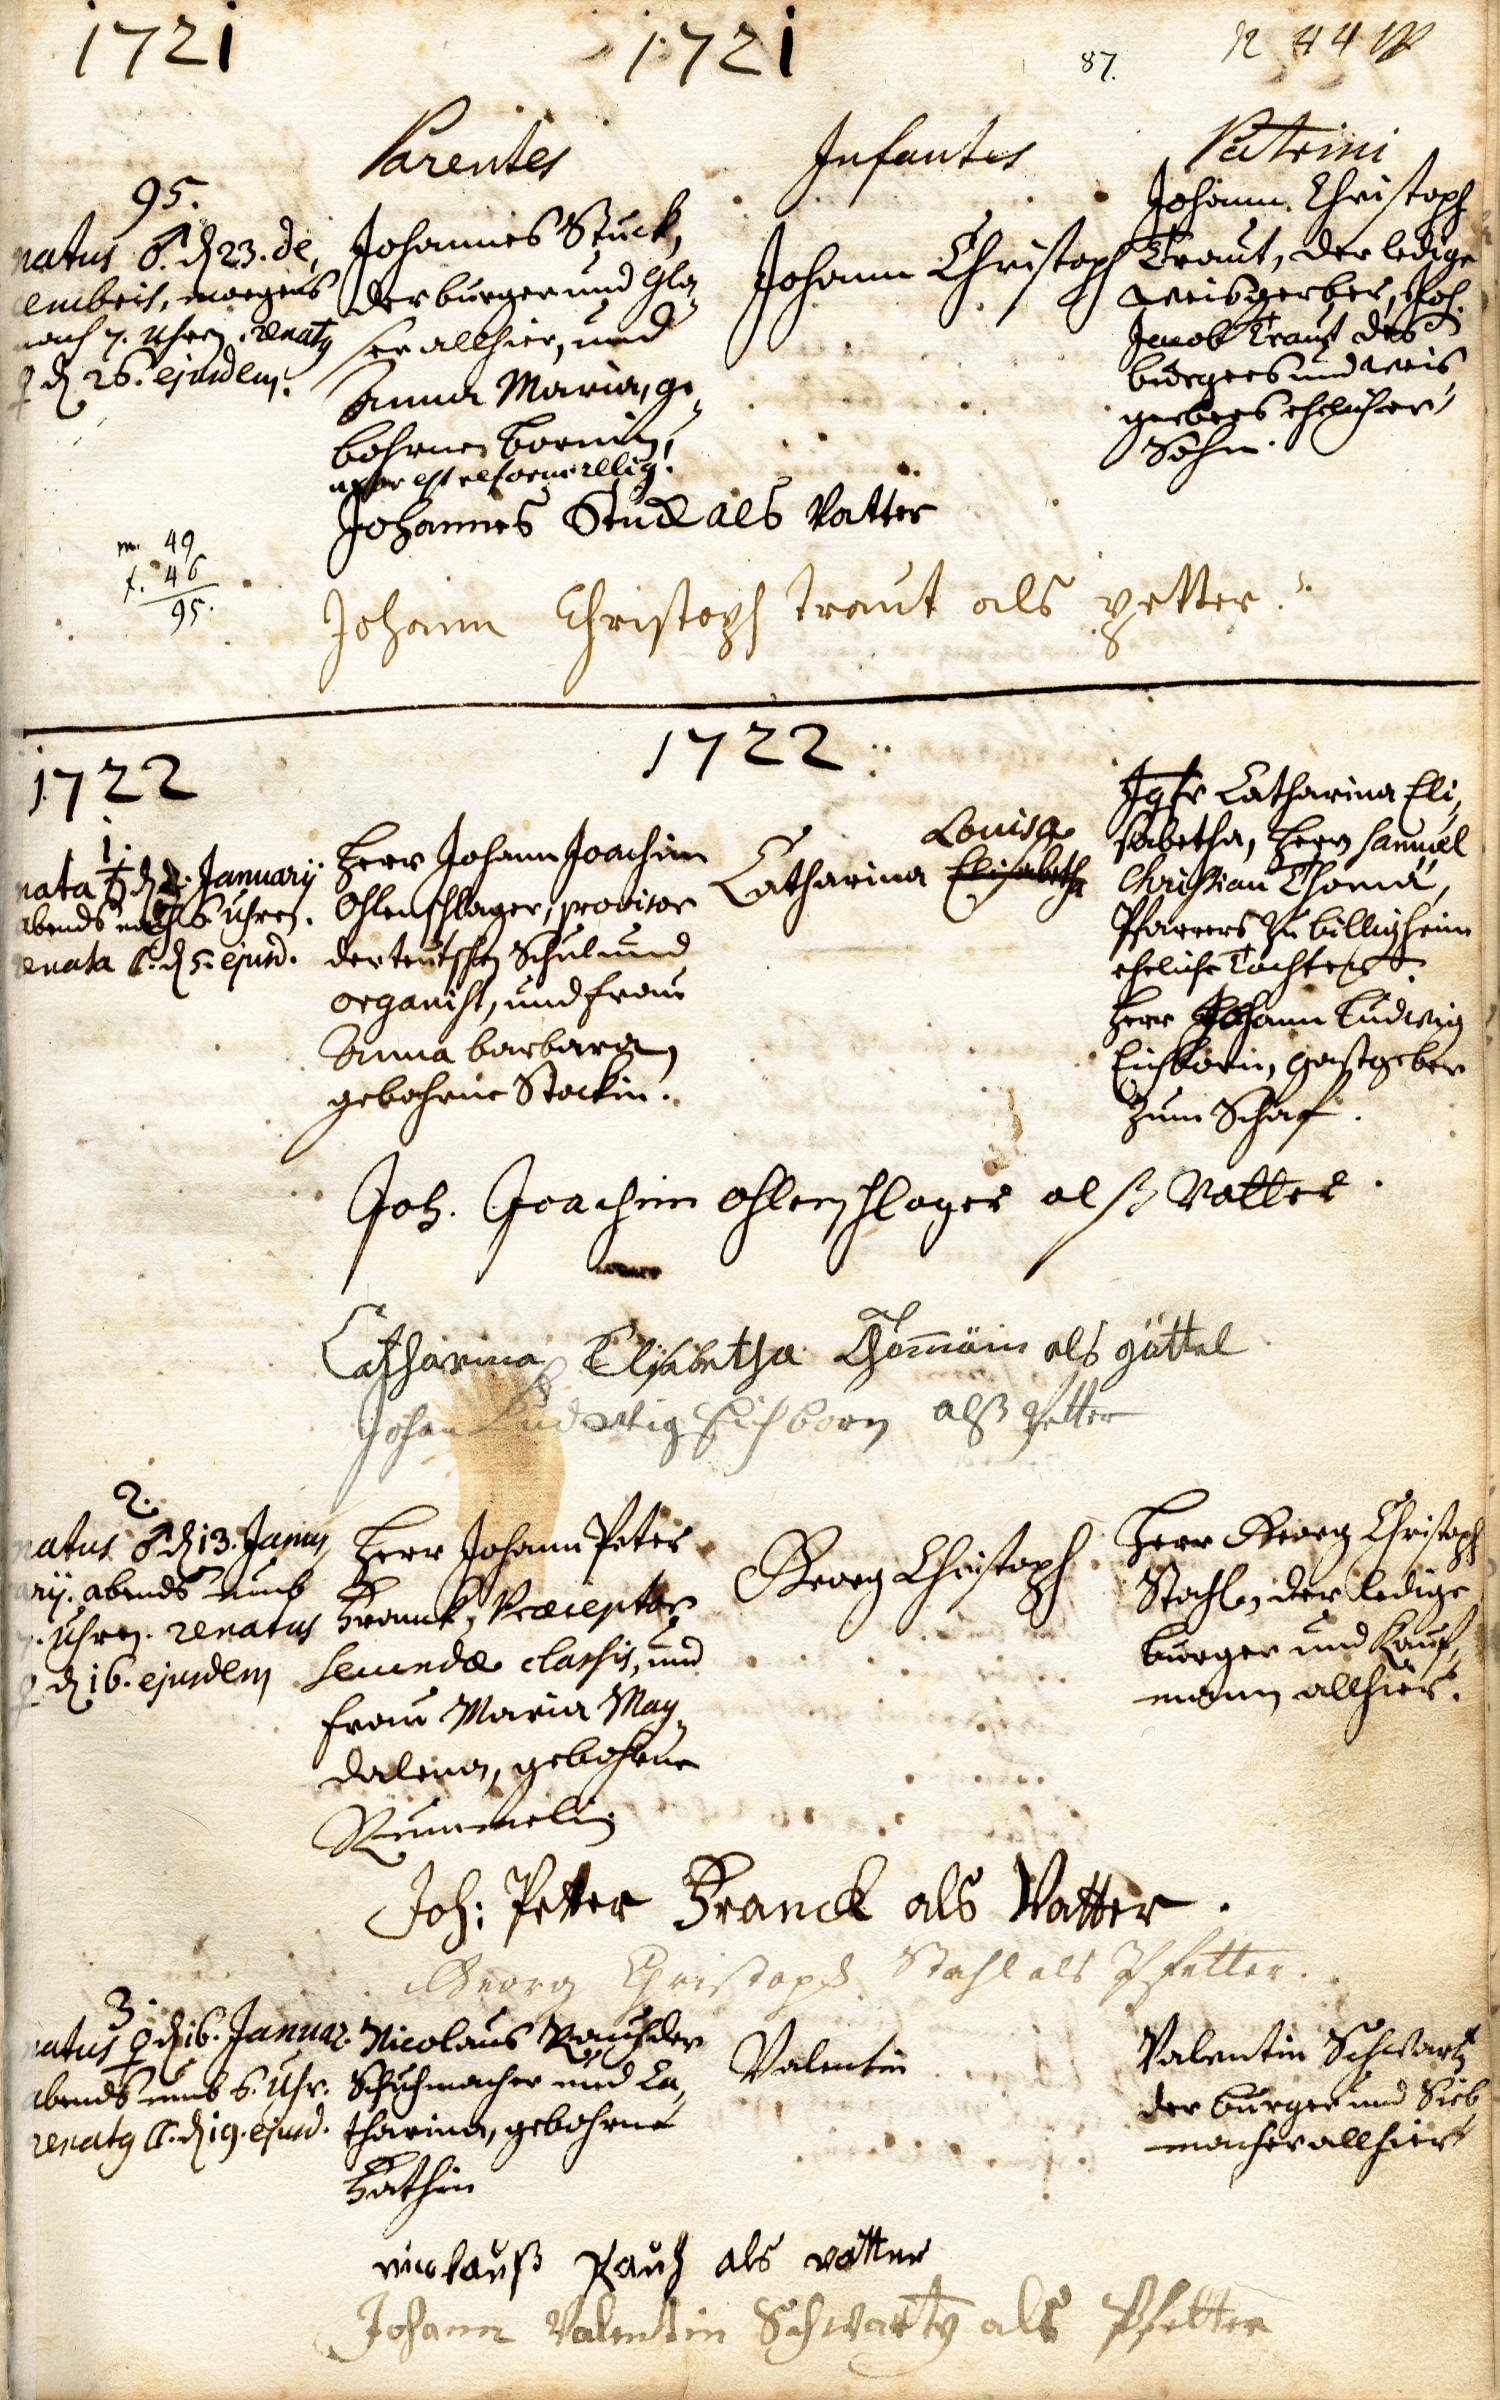 1721 1721 87.
Parentes Infantes Patrini
95.
natus ♂ d 23. de,
cembris, morgens
nach 7. Uhren. renatq
♀ d 26. ejusdem.
Johannes Stuck,
der burger und Gla,
ser allhier, und
Anna Maria, ge,
bohrne Bornin,
uxor est reformirt.
Johann Christoph
Johann Christoph
Traut, der ledige
Weisgerber, Joh.
Jacob Traut des
burgers und Weis
gerbers ehelicher
Sohn.
Johannes Stuck als Vatter
m. 49
f. 46
95.
Johann Christoph Traut als petter.
1722 1722
1.
nata ♄ d January
abends nach 6 Uhren.
renata d 5. ejusd.
Herr Johann Joachim
Ohlenschlager, provisor
der teutschen Schul und
organist, und frau
Anna barbara,
gebohrne Stockin.
Louisa
Catharina Elisabetha
Jgfr Catharina Eli,
sabetha, Herrn Samuel
Christian Thomä,
Pfarrers zu billigheim
eheliche Tochter.
Herr Johann Ludwig
Eichborn, gastgeber
zum Schaf.
Joh. Joachim Ohlenschlager alß Vatter.
Catharina Elisabetha Thomäin als göttel
Johan Ludwig Eichborn alß petter
2.
natus ♂ d 13. Janu,
arij. abends umb
7. Uhren. renatus
♀ d 16. ejusdem
Herr Johann Peter
Franck, Præceptor
secundæ classis, und
frau Maria Mag,
dalena, gebohrne
Rummelin
Georg Christoph
Herr Georg Christoph
Stahl, der ledige
burger und Kauf,
mann allhier.
Joh: Petter Franck als Vatter.
Georg Christoph Stahl als Pfetter.
3.
natus ♀ d 16. Januar.
abends umb 6. Uhr.
renatq d 19. ejusd.
Nicolaus Rauch der
Schuhmacher und Ca,
tharina, gebohrne
Fathin
Valentin
Valentin Schwartz
der burger und Sieb
macher allhier
nicolauß Rauch als vatter
Johann Valentin Schwartz als Pfetter